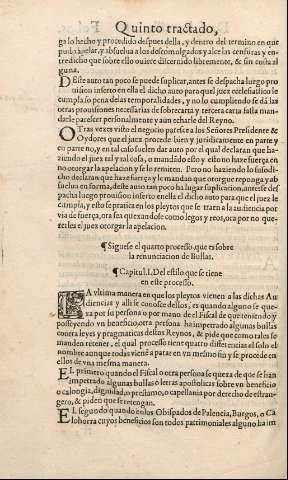 Quinto tractado,
ga lo hecho y procedido despues della, y dentro del termino en que
pudo apelar, y absuelua a los descomulgados y alce las censuras y en-
tredicho que sobre ello ouiere discernido libremente, & sin costa al
guna.
DEste auto tan poco se puede suplicar, antes se despacha luego pro
uision inserto en ella el dicho auto para quel juez ecclesiastico le
cumpla so pena delas temporalidades, y no lo cumpliendo se dá las
otras prouisiones necessarias de sobrecarta y tercera carta fasta man-
darle parescer personalmente y aun echarle del Reyno.
OTras vezes visto el negocio paresce a los Señores Presidente &
Oydores que el juez procede bien y juridicamente en parte y
en parte no, y en tal caso suelen dar auto por el qual declaran que ha-
ziendo el juez tal y tal cosa, o mandādo eso y esto no haze fuerça en
no otorgar la apelacion y se lo remiten. Pero no haziendo lo susodi-
cho declaran que haze fuerça y le mandan que otorgue reponga y ab
suelua en forma, deste auto tan poco ha lugar suplicacion, antes se des
pacha luego prouision inserto enella el dicho auto para que el juez le
cumpla, y esto se pratica en los pleytos que se tratan a la audiencia por
via de fuerça, ora sea quexandose como legos y reos, ora por no que-
rerles el juez otorgar la apelacion.
¶ Siguese el quarto processo, que es sobre
la renunciacion de Bullas.
¶ Capitul. I. Del estilo que se tiene
en este processo.
LA vltima manera en que los pleytos vienen a las dichas Au
diencias y alli se conosce dellos, es quando alguno se que-
xa por su persona o por mano de el Fiscal de que teniendo y
posseyendo vn beneficio, otra persona ha impetrado algunas bullas
contra leyes y pragmaticas destos Reynos, & pide que como tales se
manden retener, el qual processo tiene quatro differencias el solo el
nombre aunque todas viené a parar en vn mesmo fin y se procede en
ellos de vna mesma manera.
EL primero quando el Fiscal o otra persona se quexa de que se han
impetrado algunas bullas o letras apostolicas sobre vn beneficio
o calongia, dignidad, o prestamo, o capellania por derecho de estran-
gero, & piden que se retengan.
EL segundo quando enlos Obispados de Palencia, Burgos, o Ca
lohorra cuyos beneficios son todos patrimoniales alguno ha im